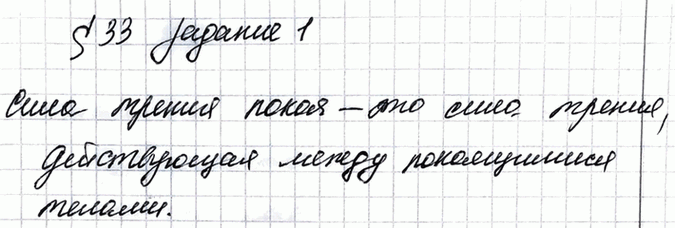 § 33 задание 1
Сила трения покоя – это сила трения,
действующая между покоящимися
телами.